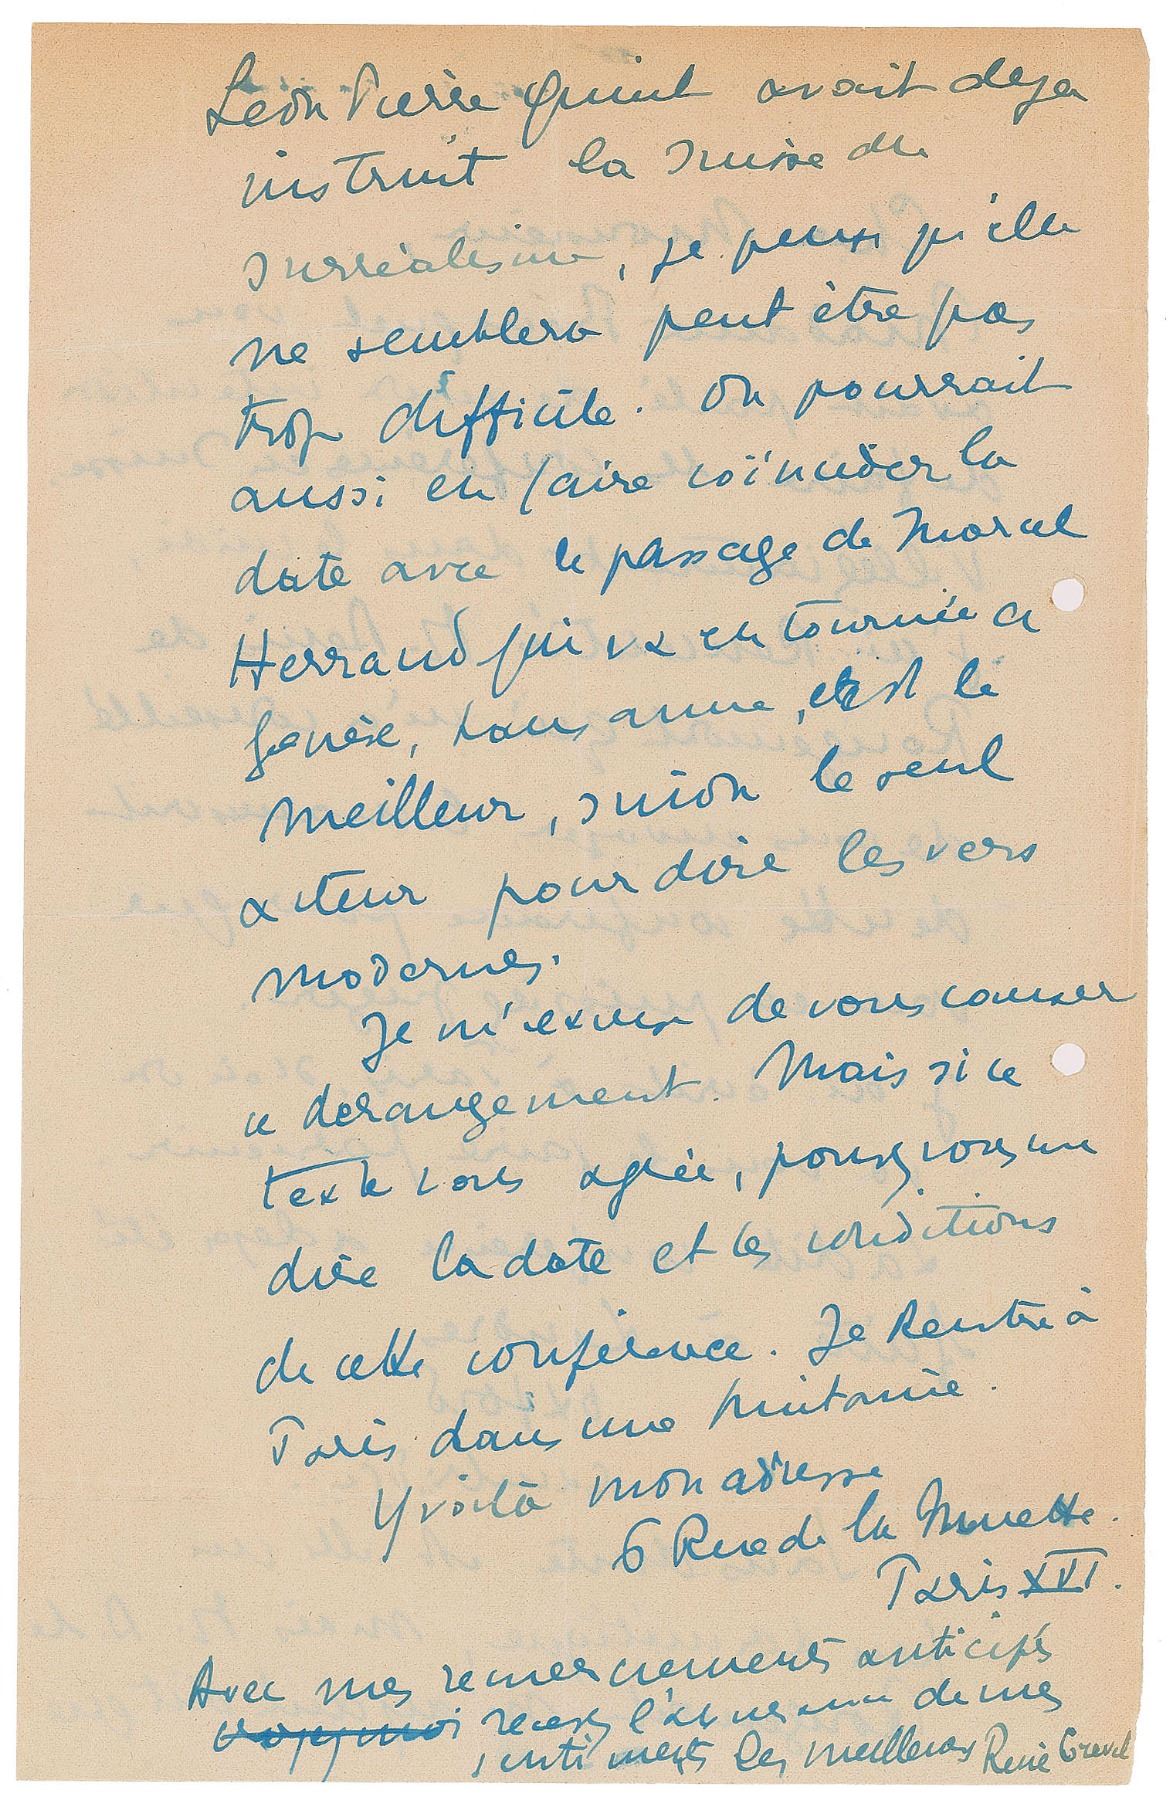 Léon Pierre Quint avait deja
instruit la Suisse du
surréalisme, je pense qu'elle
ne semblera peut être pas
trop difficile. On pourrait
aussi en faire coïncider la
date avec le passage de Marcel
Herrand qui va en tournée a
Genève, Lausanne, et est le
meilleur, sinon le seul
acteur pour dire les vers
modernes.
Je m'excuse de vous causer
ce derangement. Mais si ce
texte vous agrée, pouvez vous me
dire la date et les conditions
de cette conférence. Je Rentre à
Paris dans une huitaine.
Y voilà mon adresse
6 Rue de la Muette.
Paris XVI.
Avec mes remerciements anticipés
recevez l'assurance de mes
sentiments les meilleurs René Crevel